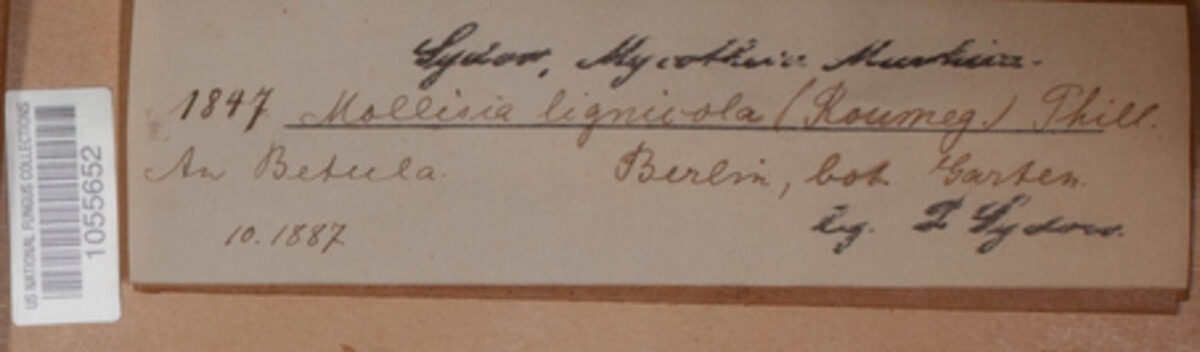 Sydow, Mycotheca Marchica.
1847. Mollisia lignicola (Roumeg.) Phill.
An Betula. Berlin, bot. Garten.
10.1887 leg. P Sydow.
US NATIONAL FUNGUS COLLECTIONS
1055652